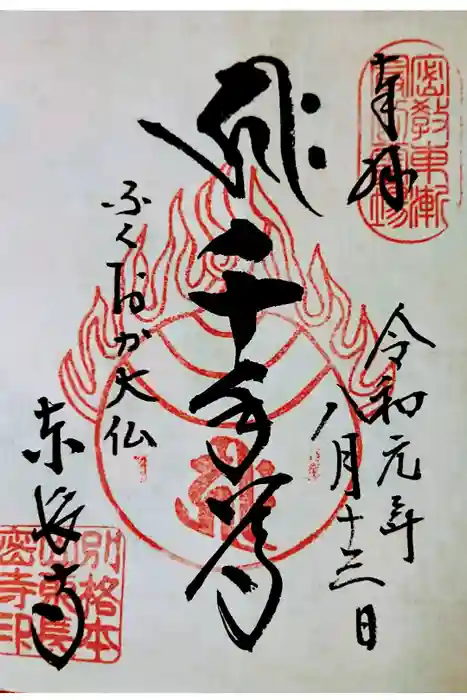 奉拝
密教東漸
最初霊場
令和元年
八月十三日
千手尊
ふくおか大仏
東長寺
別格本
山東長
密寺印